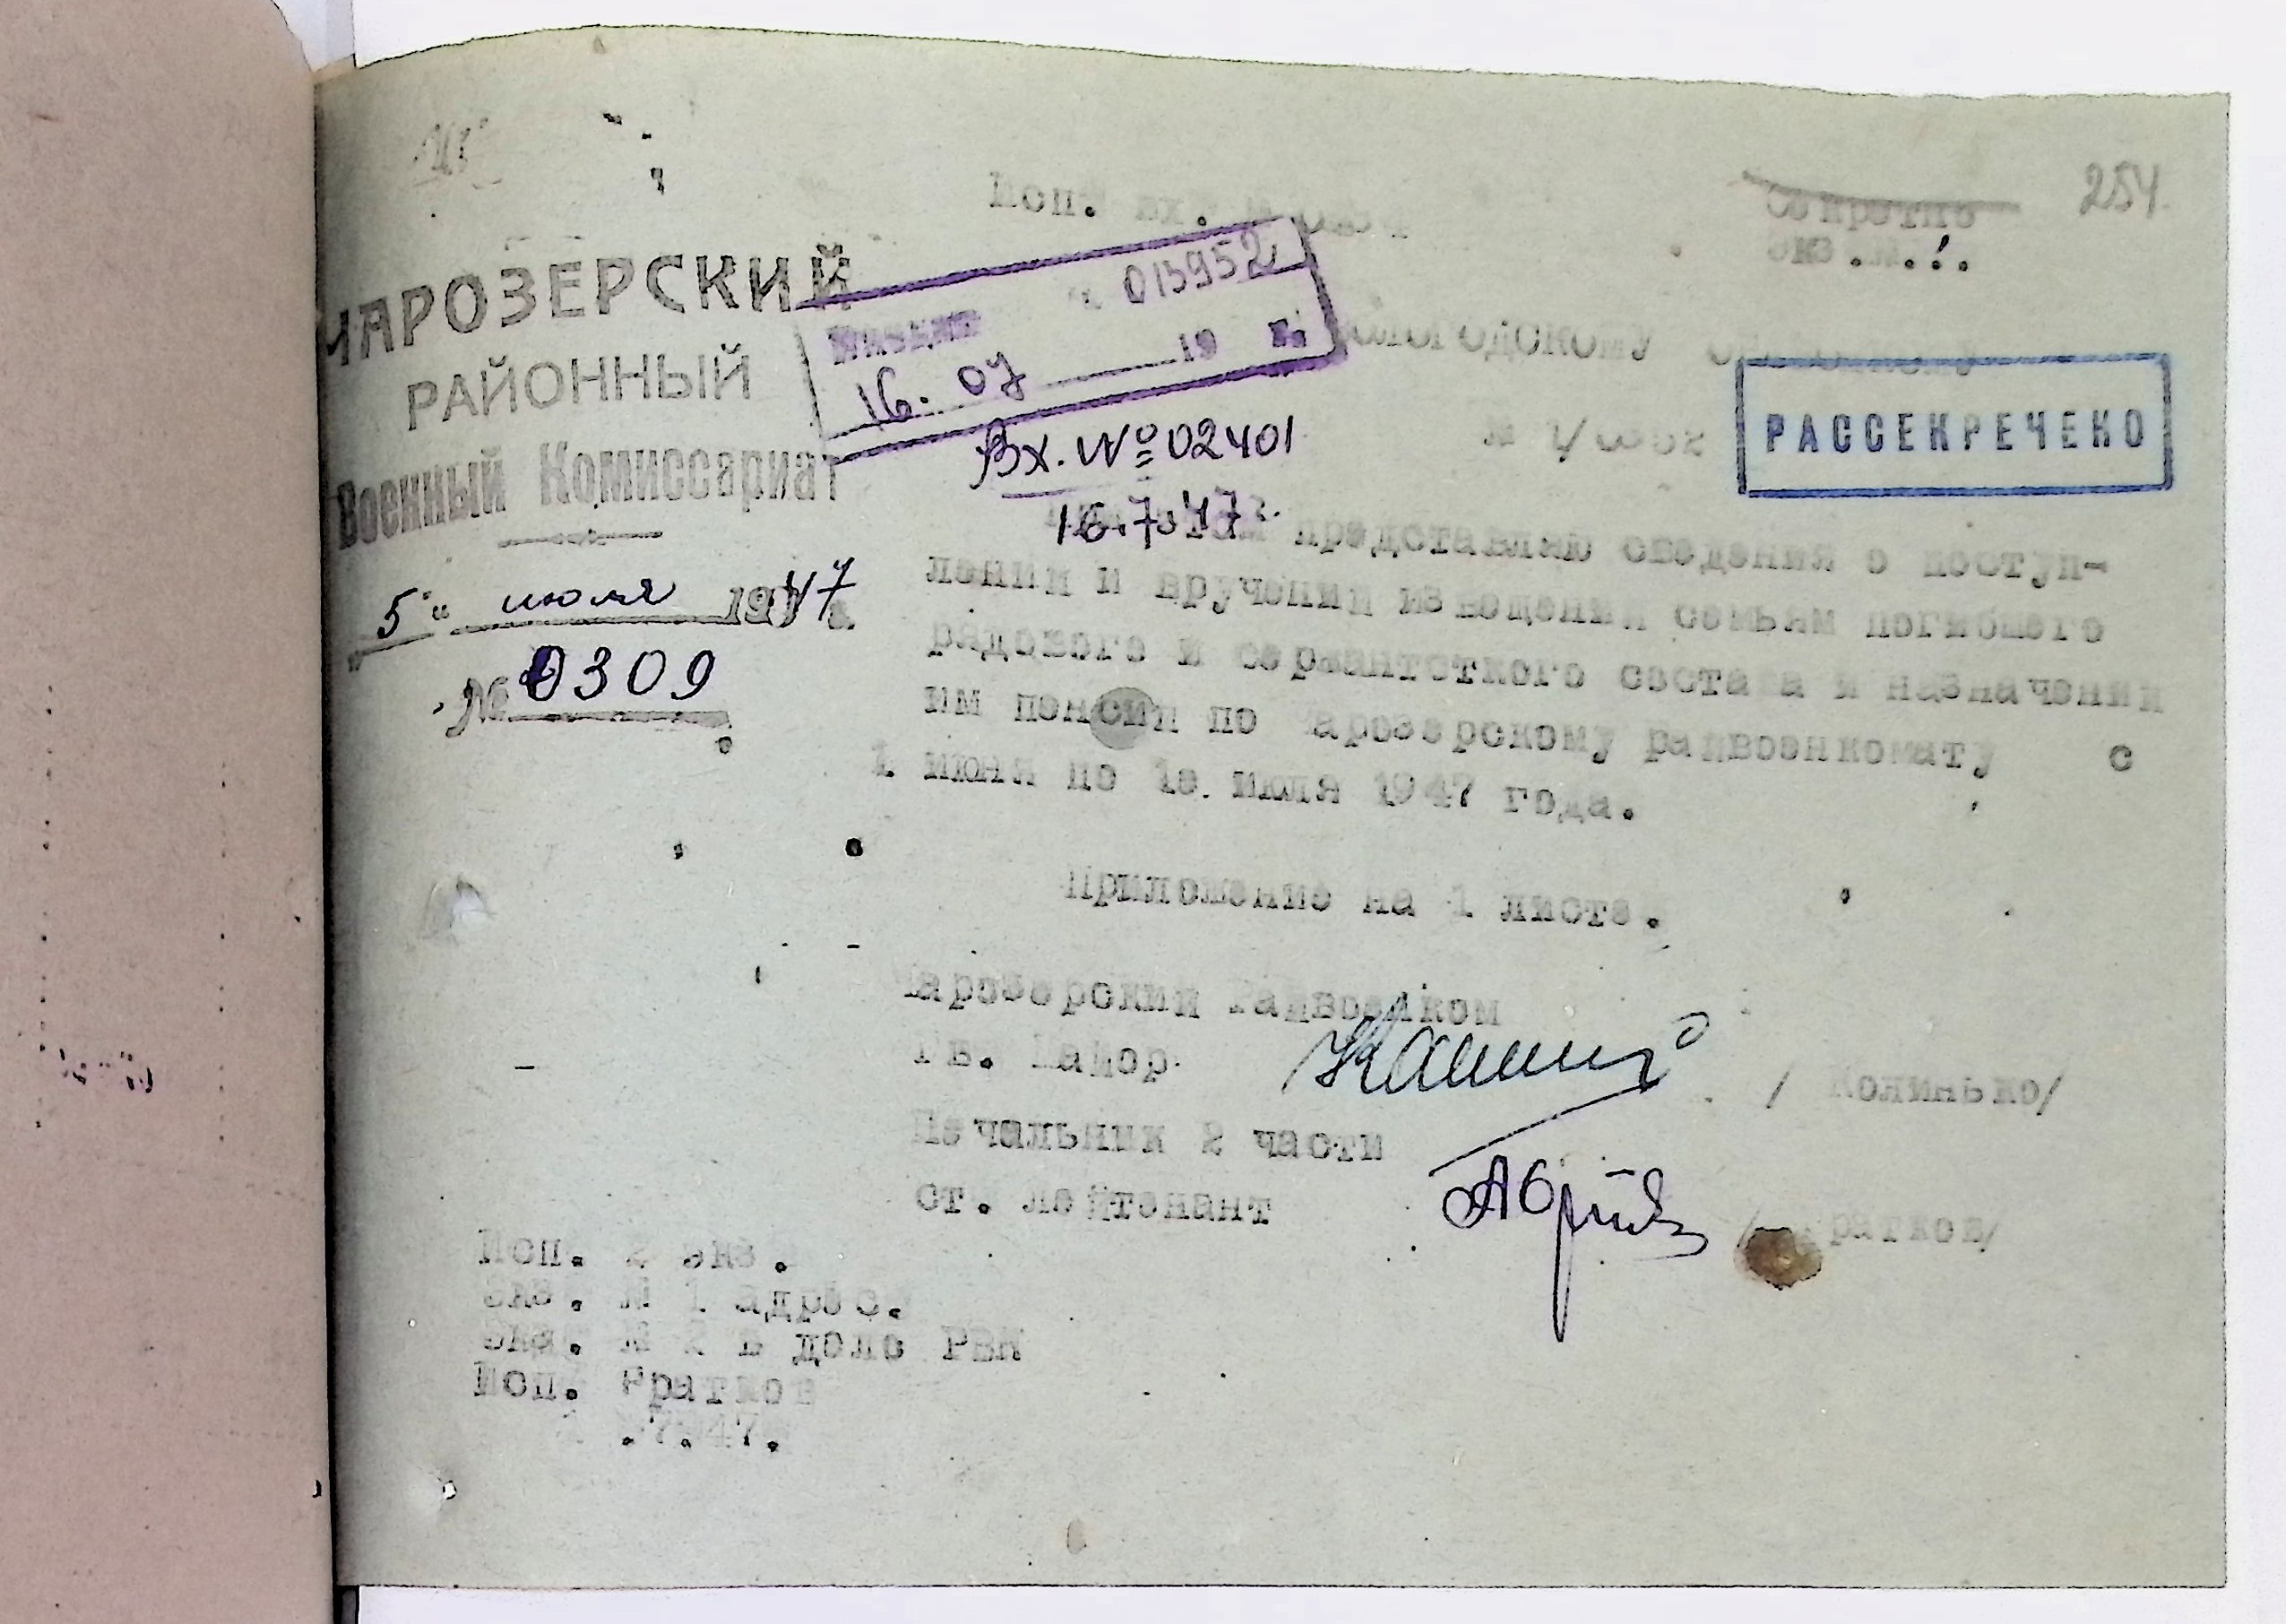 254
Секретно
Экз.№.1.
ЧАРОЗЕРСКИЙ
РАЙОННЫЙ
Военный Комиссариат
5" июля 1947 г.
№ 0309
015952
16. 07 19
Вх. № 02401
16.7.47 г.
РАССЕКРЕЧЕНО
представляю сведения о поступ-
лении и вручении извещений семьям погибшего
рядового и сержантсткого состава и назначении
им пенсии по Чарозерскому райвоенкомату с
1 июня по 1е. июля 1947 года.
Приложение на 1 листе.
Чарозерский Райвоенком
Гв. Майор
/ Колинько/
Начальник 2 части
ст. лейтенант
/Братков/
Исп. 2 экз.
Экз. № 1 адрес.
Экз. № 2 в дело РВК
Исп. Братков
.7.47.